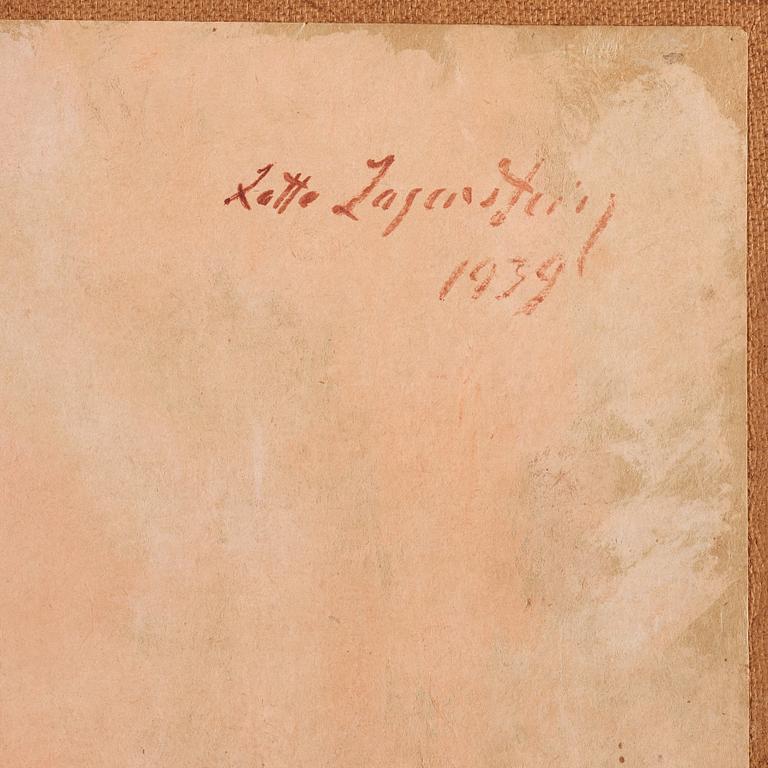 Lotte Laserstein
1939